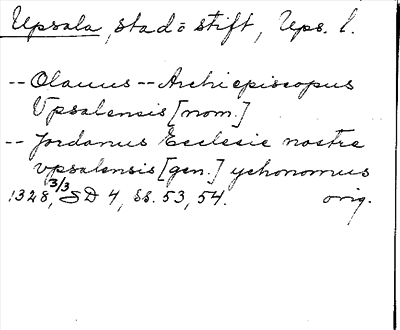 Upsala, stad o stift, Ups. l.
-- Olauus -- Archiepiscopus
Vpsalensis [nom.]
-- Jordanus Ecclesie nostre
vpsalensis [gen.] ychonomus
1328, 3/3, SD 4, ss. 53, 54. orig.